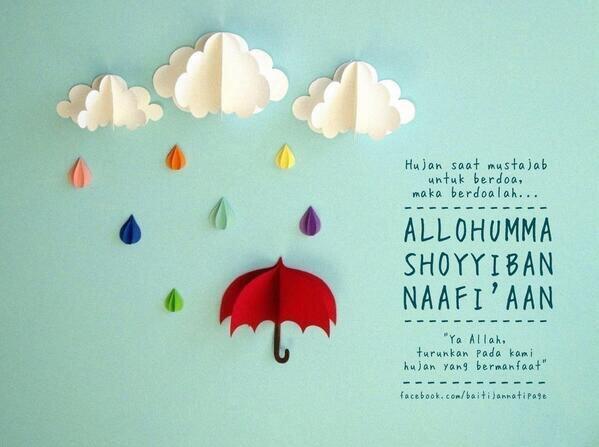 Hujan saat mustajab
untuk berdoa,
maka berdoalah...
ALLOHUMMA
SHOYYIBAN
NAAFI'AAN
"Ya Allah,
turunkan pada kami
hujan yang bermanfaat"
facebook.com/baitijannatipage